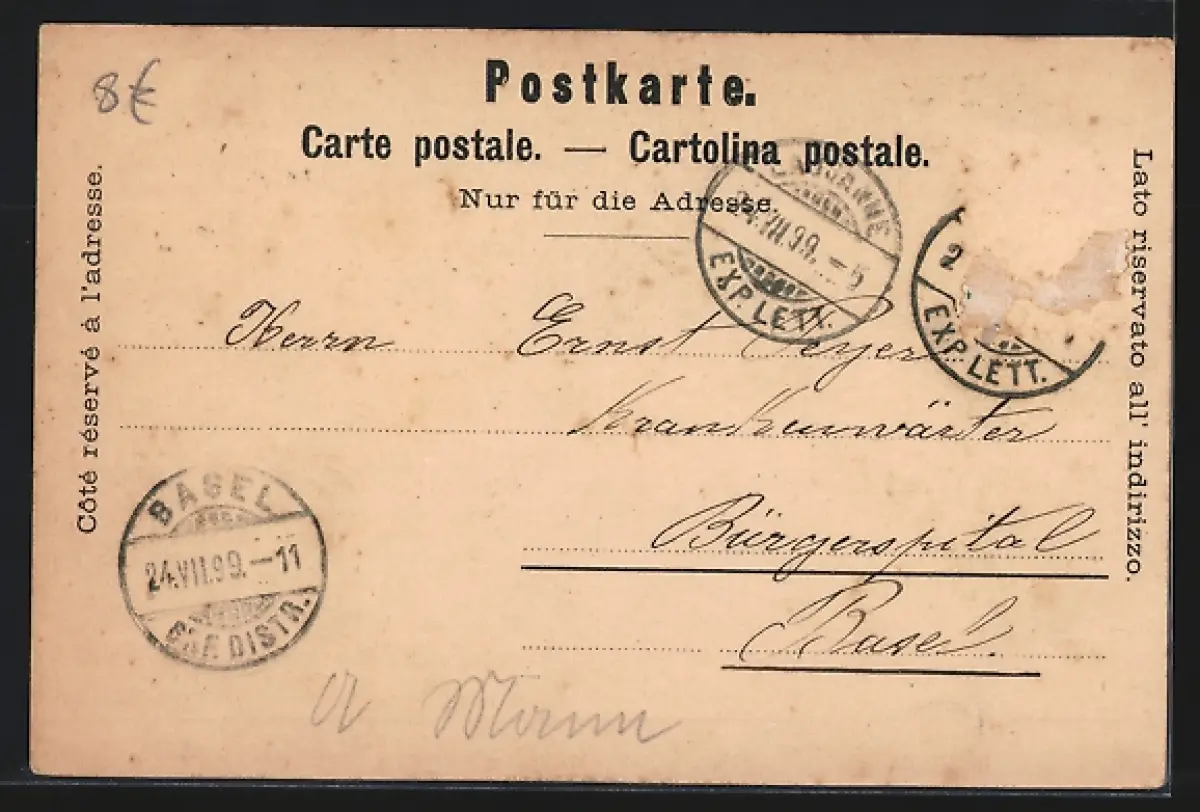 8€
Postkarte.
Carte postale. — Cartolina postale.
Nur für die Adresse.
Côté réservé à l'adresse.
Lato riservato all' indirizzo.
LAUSANNE
24.VII.99.–5
EXP. LETT.
2
EXP. LETT.
Herrn Ernst
Krankenwärter
Bürgerspital
Basel.
BASEL
24.VII.99.–11
BRF. DISTR.